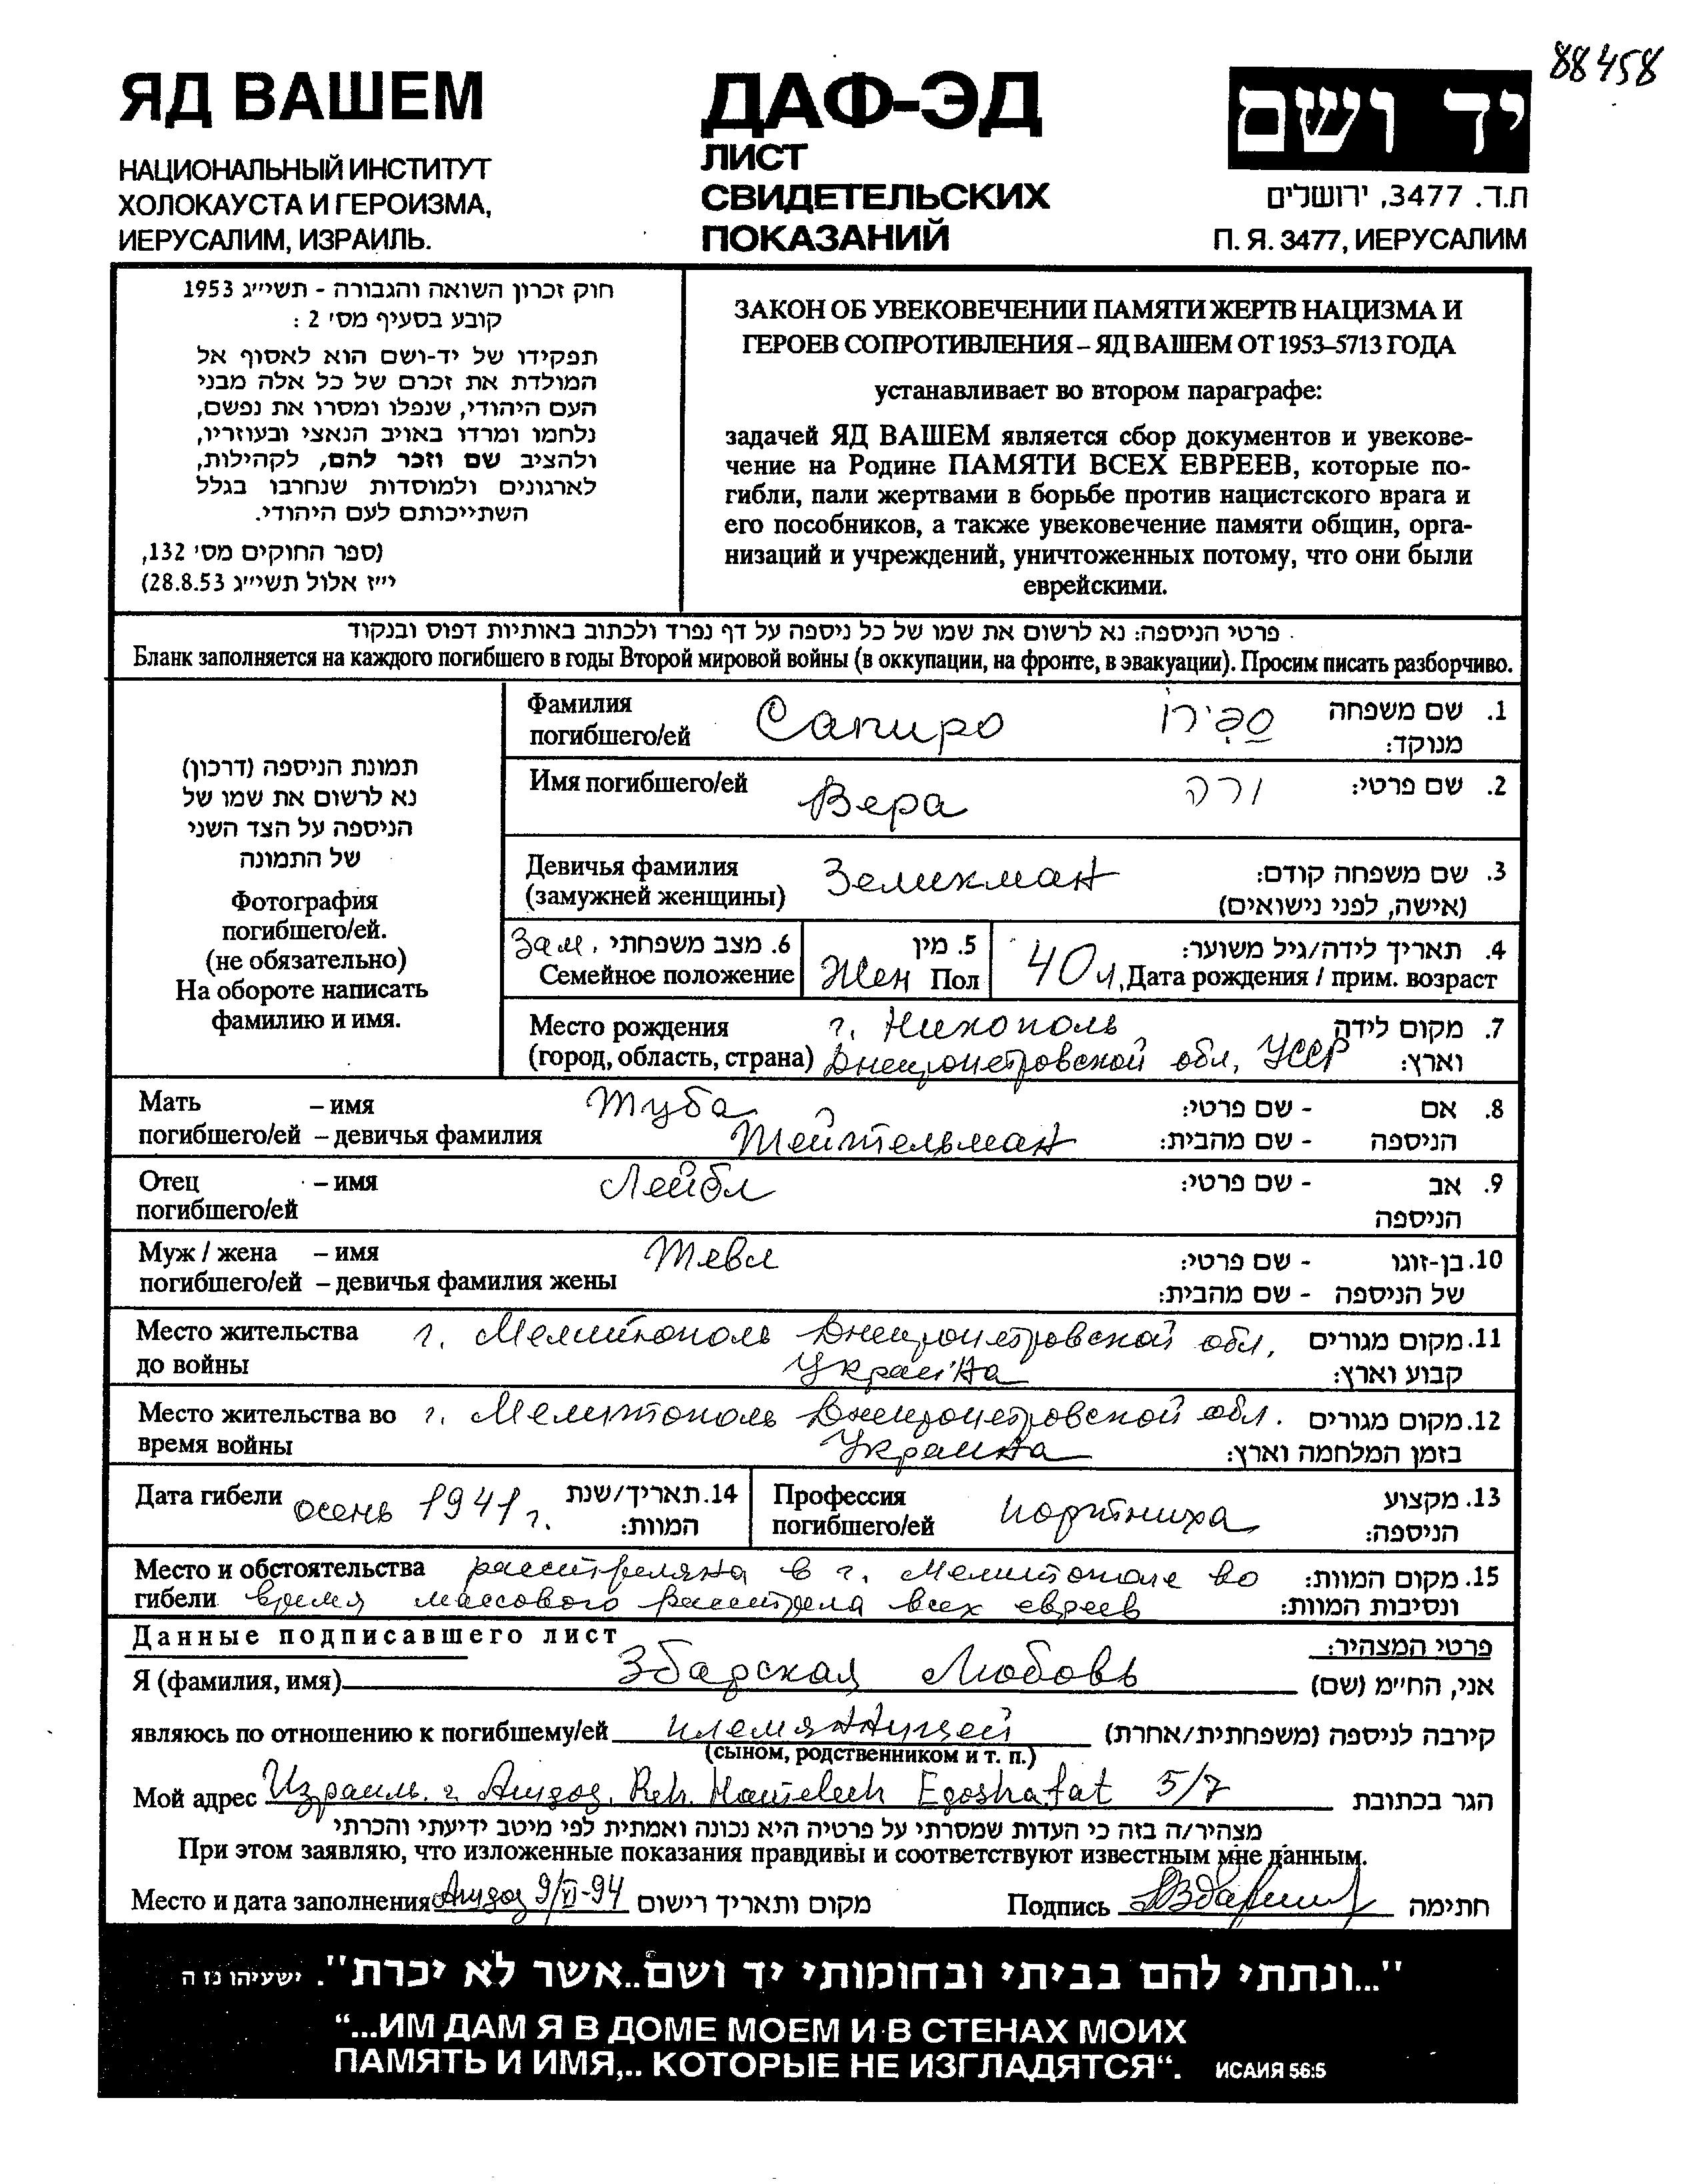 88458
ЯД ВАШЕМ
НАЦИОНАЛЬНЫЙ ИНСТИТУТ
ХОЛОКАУСТА И ГЕРОИЗМА,
ИЕРУСАЛИМ, ИЗРАИЛЬ.
ДАФ-ЭД
ЛИСТ
СВИДЕТЕЛЬСКИХ
ПОКАЗАНИЙ
יד ושם
ת.ד. 3477, ירושלים
П. Я. 3477, ИЕРУСАЛИМ
חוק זכרון השואה והגבורה - תשי״ג 1953
קובע בסעיף מס׳ 2 :
תפקידו של יד-ושם הוא לאסוף אל
המולדת את זכרם של כל אלה מבני
העם היהודי, שנפלו ומסרו את נפשם,
נלחמו ומרדו באויב הנאצי ובעוזריו,
ולהציב שם וזכר להם, לקהילות,
לארגונים ולמוסדות שנחרבו בגלל
השתייכותם לעם היהודי.
(ספר החוקים מס׳ 132,
י״ז אלול תשי״ג 28.8.53)
ЗАКОН ОБ УВЕКОВЕЧЕНИИ ПАМЯТИ ЖЕРТВ НАЦИЗМА И
ГЕРОЕВ СОПРОТИВЛЕНИЯ – ЯД ВАШЕМ ОТ 1953–5713 ГОДА
устанавливает во втором параграфе:
задачей ЯД ВАШЕМ является сбор документов и увекове-
чение на Родине ПАМЯТИ ВСЕХ ЕВРЕЕВ, которые по-
гибли, пали жертвами в борьбе против нацистского врага и
его пособников, а также увековечение памяти общин, орга-
низаций и учреждений, уничтоженных потому, что они были
еврейскими.
פרטי הניספה: נא לרשום את שמו של כל ניספה על דף נפרד ולכתוב באותיות דפוס ובנקוד
Бланк заполняется на каждого погибшего в годы Второй мировой войны (в оккупации, на фронте, в эвакуации). Просим писать разборчиво.
תמונת הניספה (דרכון)
נא לרשום את שמו של
הניספה על הצד השני
של התמונה
Фотография
погибшего/ей.
(не обязательно)
На обороте написать
фамилию и имя.
Фамилия Сапиро סַפִּירוֹ 1. שם משפחה
погибшего/ей מנוקד:
Имя погибшего/ей Вера ורה 2. שם פרטי:
Девичья фамилия Зеликман 3. שם משפחה קודם:
(замужней женщины) (אישה, לפני נישואים)
Зам. 6. מצב משפחתי 5. מין 4. תאריך לידה/גיל משוער:
Семейное положение Жен Пол 40 л, Дата рождения / прим. возраст
Место рождения г. Никополь 7. מקום לידה
(город, область, страна) Днепропетровской обл, УССР וארץ:
Мать – имя Туба - שם פרטי: 8. אם
погибшего/ей – девичья фамилия Тейтельман - שם מהבית: הניספה
Отец – имя Лейбл - שם פרטי: 9. אב
погибшего/ей הניספה
Муж / жена – имя Тевл - שם פרטי: 10. בן-זוגו
погибшего/ей – девичья фамилия жены - שם מהבית: של הניספה
Место жительства г. Мелитополь Днепропетровской обл, 11. מקום מגורים
до войны Украина קבוע וארץ:
Место жительства во г. Мелитополь Днепропетровской обл. 12. מקום מגורים
время войны Украина בזמן המלחמה וארץ:
Дата гибели осень 1941 г. 14. תאריך/שנת המוות:
Профессия погибшего/ей портниха 13. מקצוע הניספה:
Место и обстоятельства расстреляна в г. Мелитополе во 15. מקום המוות:
гибели время массового расстрела всех евреев ונסיבות המוות:
Данные подписавшего лист פרטי המצהיר:
Я (фамилия, имя) Збарская Любовь אני, החי״מ (שם)
являюсь по отношению к погибшему/ей племянницей קירבה לניספה (משפחתית/אחרת)
(сыном, родственником и т. п.)
Мой адрес Израиль. г. Ашдод, Reh. Hamelech Egoshafat 5/7 הגר בכתובת
מצהיר/ה בזה כי העדות שמסרתי על פרטיה היא נכונה ואמתית לפי מיטב ידיעתי והכרתי
При этом заявляю, что изложенные показания правдивы и соответствуют известным мне данным.
Место и дата заполнения Ашдод 9/VI-94 מקום ותאריך רישום Подпись חתימה
"...ונתתי להם בביתי ובחומותי יד ושם..אשר לא יכרת". ישעיהו נז ה
“...ИМ ДАМ Я В ДОМЕ МОЕМ И В СТЕНАХ МОИХ
ПАМЯТЬ И ИМЯ,.. КОТОРЫЕ НЕ ИЗГЛАДЯТСЯ“. ИСАИЯ 56:5